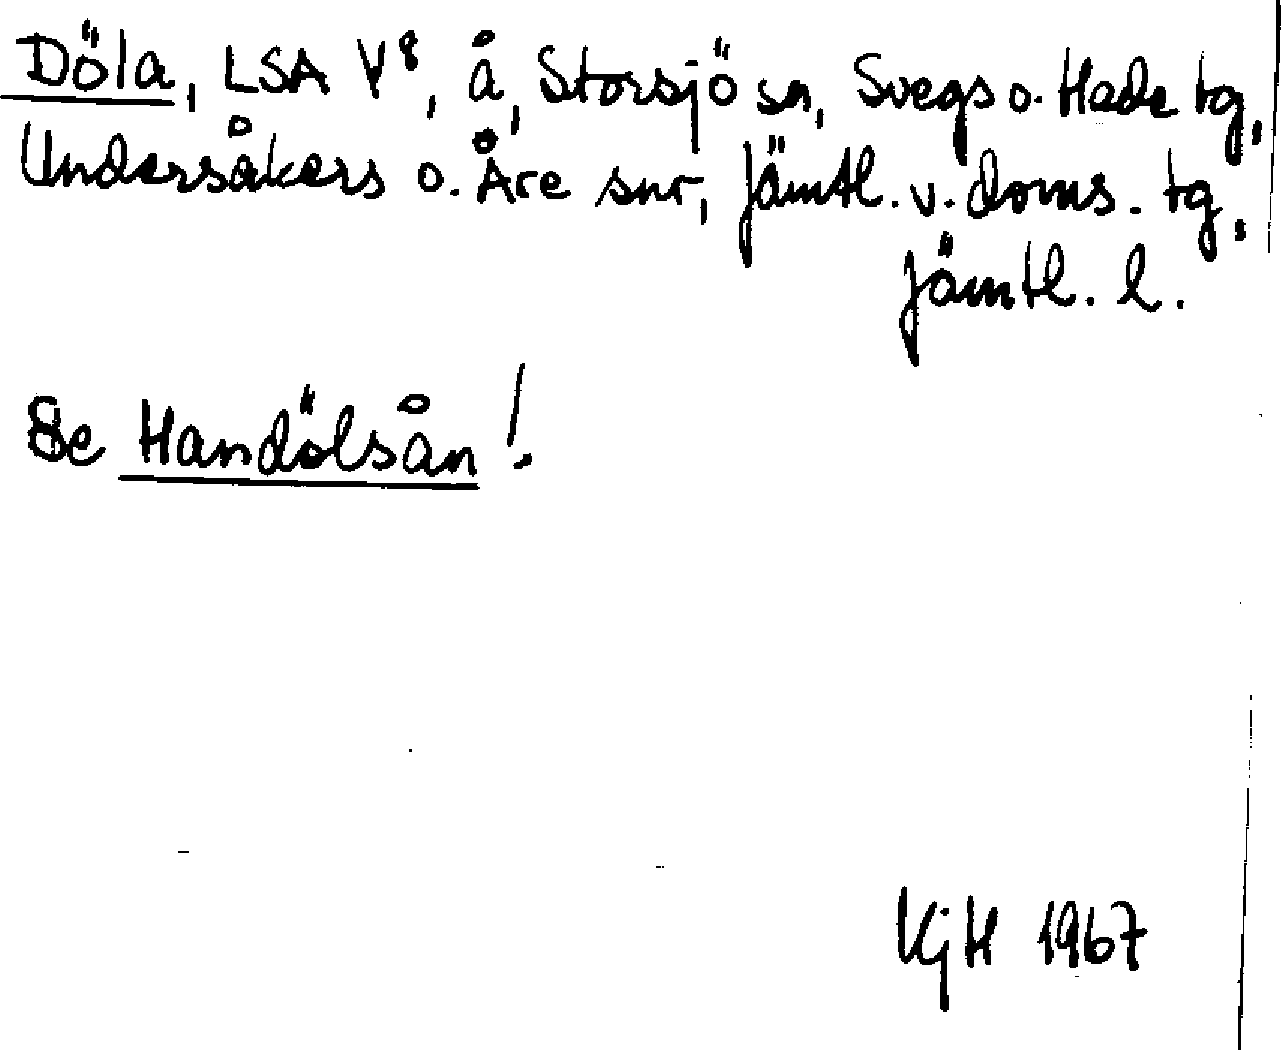 Döla, LSA V⁸, å, Storsjö sn, Svegs o. Hede tg,
Undersåkers o. Åre snr, Jämtl. v. doms. tg,
Jämtl. l.
Se Handölsån!
KjH 1967